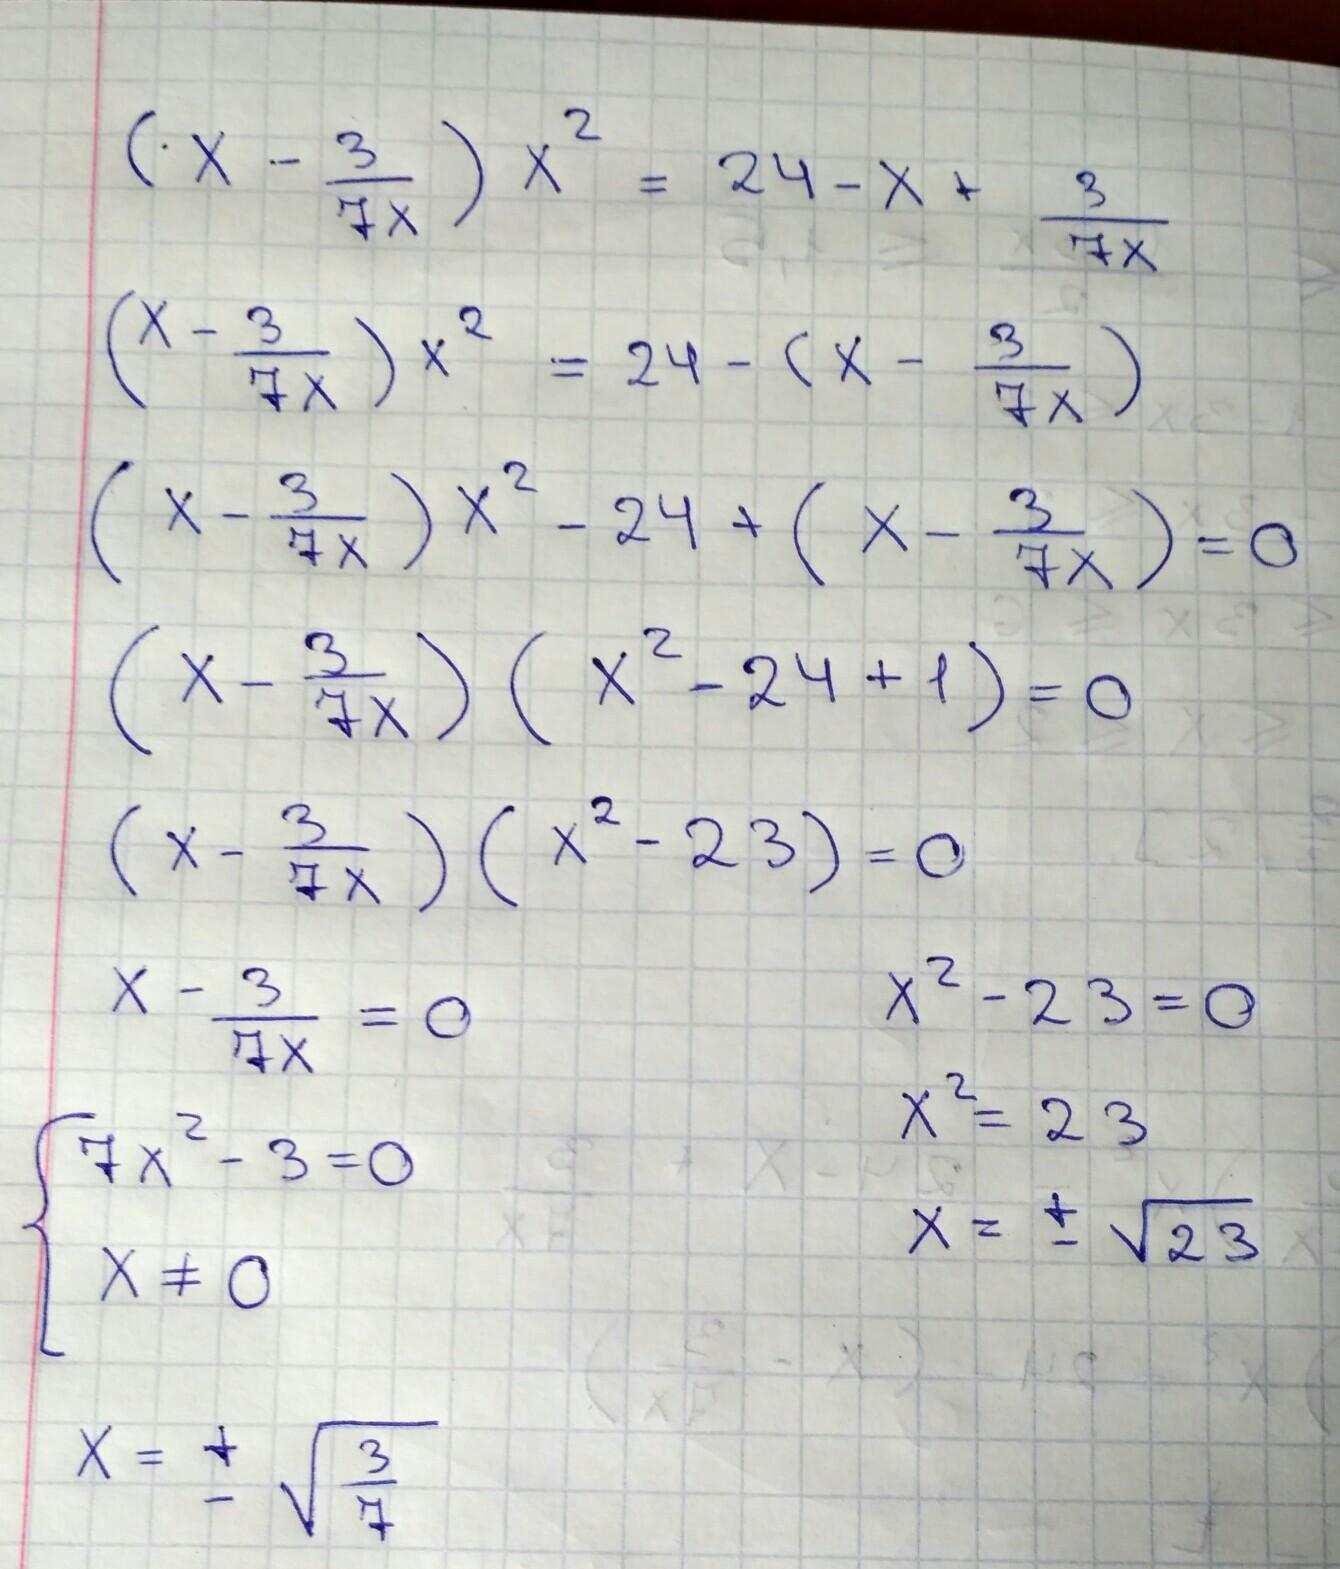 (x - 3/7x) x² = 24 - x + 3/7x
(x - 3/7x) x² = 24 - (x - 3/7x)
(x - 3/7x) x² - 24 + (x - 3/7x) = 0
(x - 3/7x) (x² - 24 + 1) = 0
(x - 3/7x) (x² - 23) = 0
x - 3/7x = 0
{ 7x² - 3 = 0
x ≠ 0
x = ± √(3/7)
x² - 23 = 0
x² = 23
x = ± √23